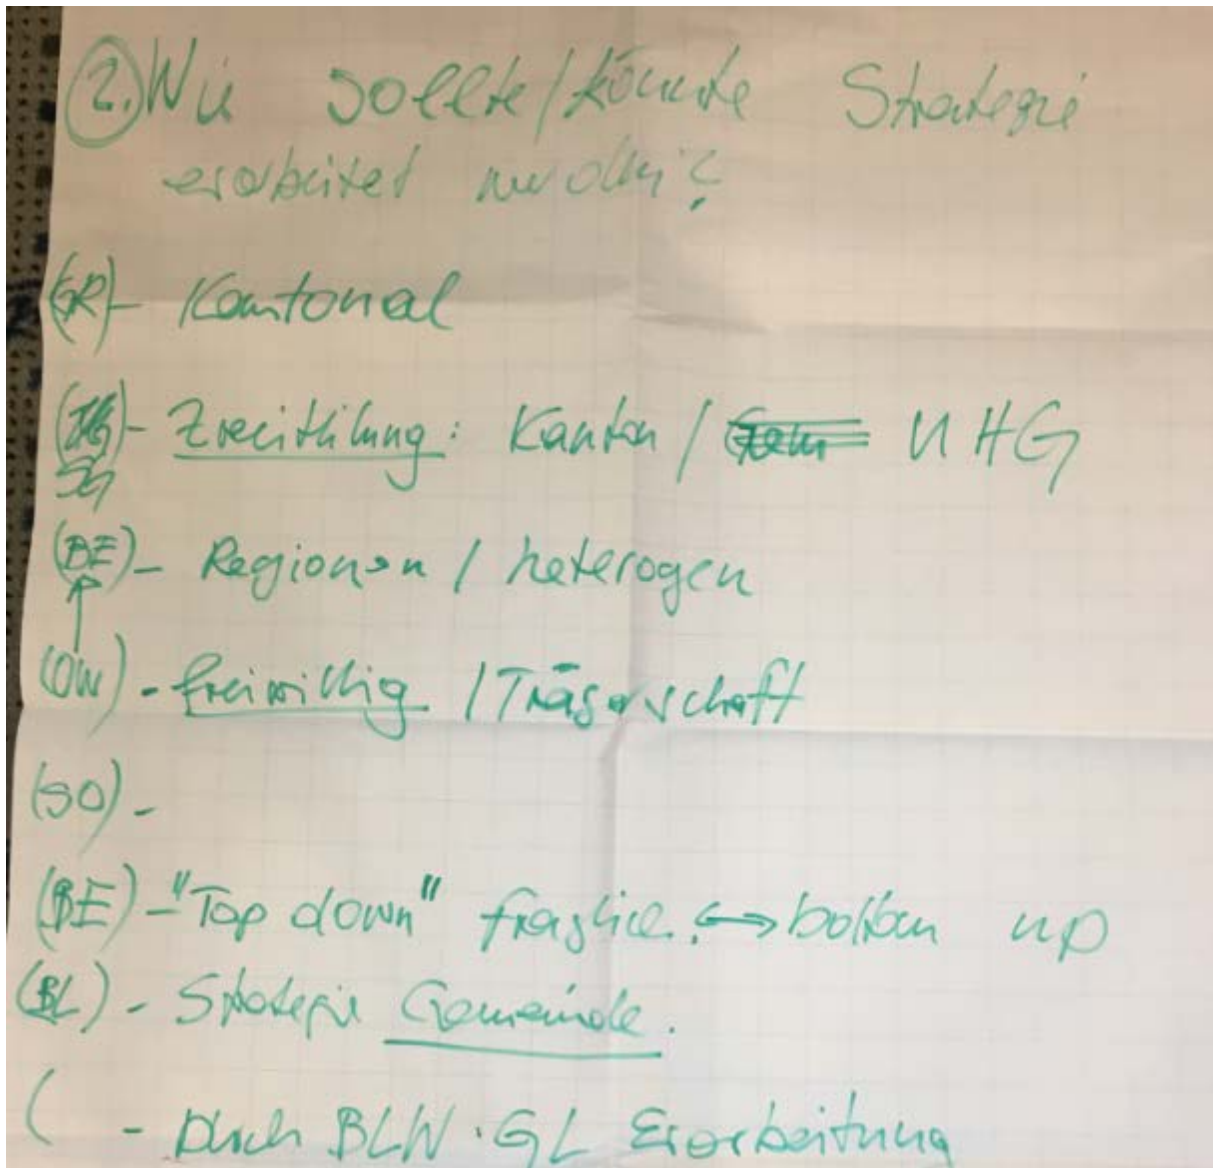 2. Wie sollte/könnte Strategie
erarbeitet werden?
(GR) - Kantonal
(TG) - Zweiteilung: Kanton / UHG
SG
(BE) - Regionen / heterogen
(OW) - freiwillig / Trägerschaft
(SO) -
(BE) - "Top down" fraglich. ↔ bottom up
(BL) - Strategie Gemeinde.
( - Durch BLW. GL Erarbeitung